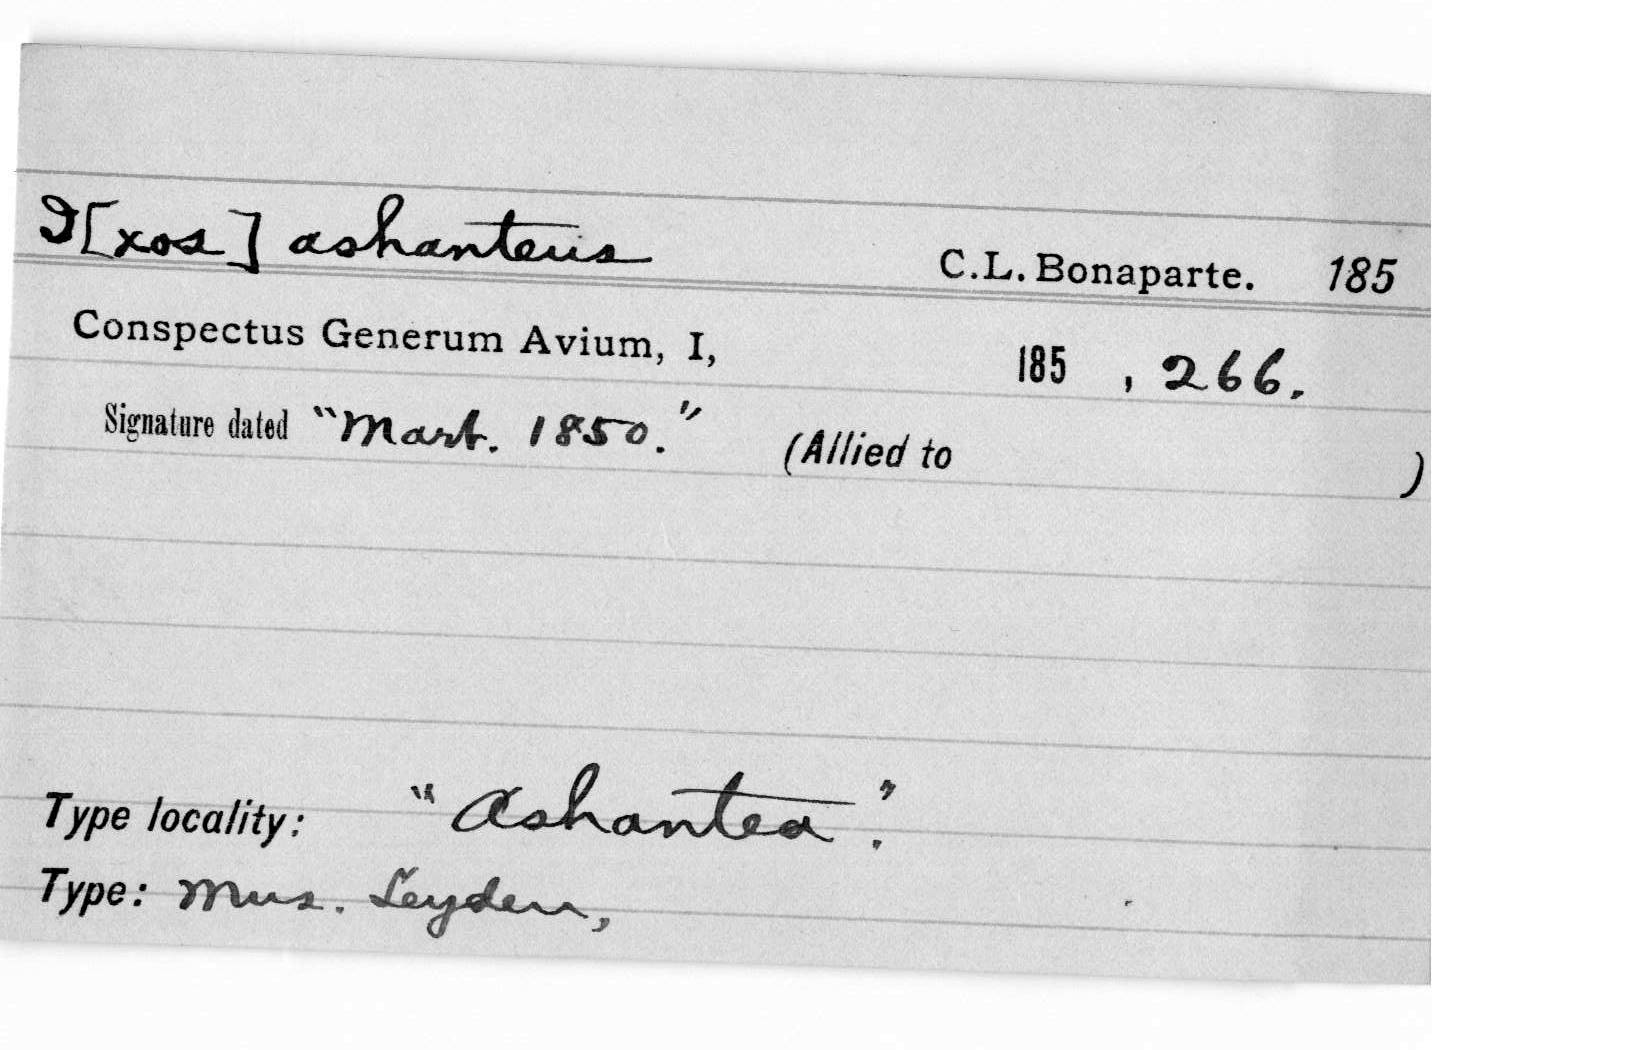 I[xos] ashanteus C.L. Bonaparte. 185
Conspectus Generum Avium, I, 185 , 266.
Signature dated "Mart. 1850." (Allied to )
Type locality: "Ashantea".
Type: Mus. Leyden,